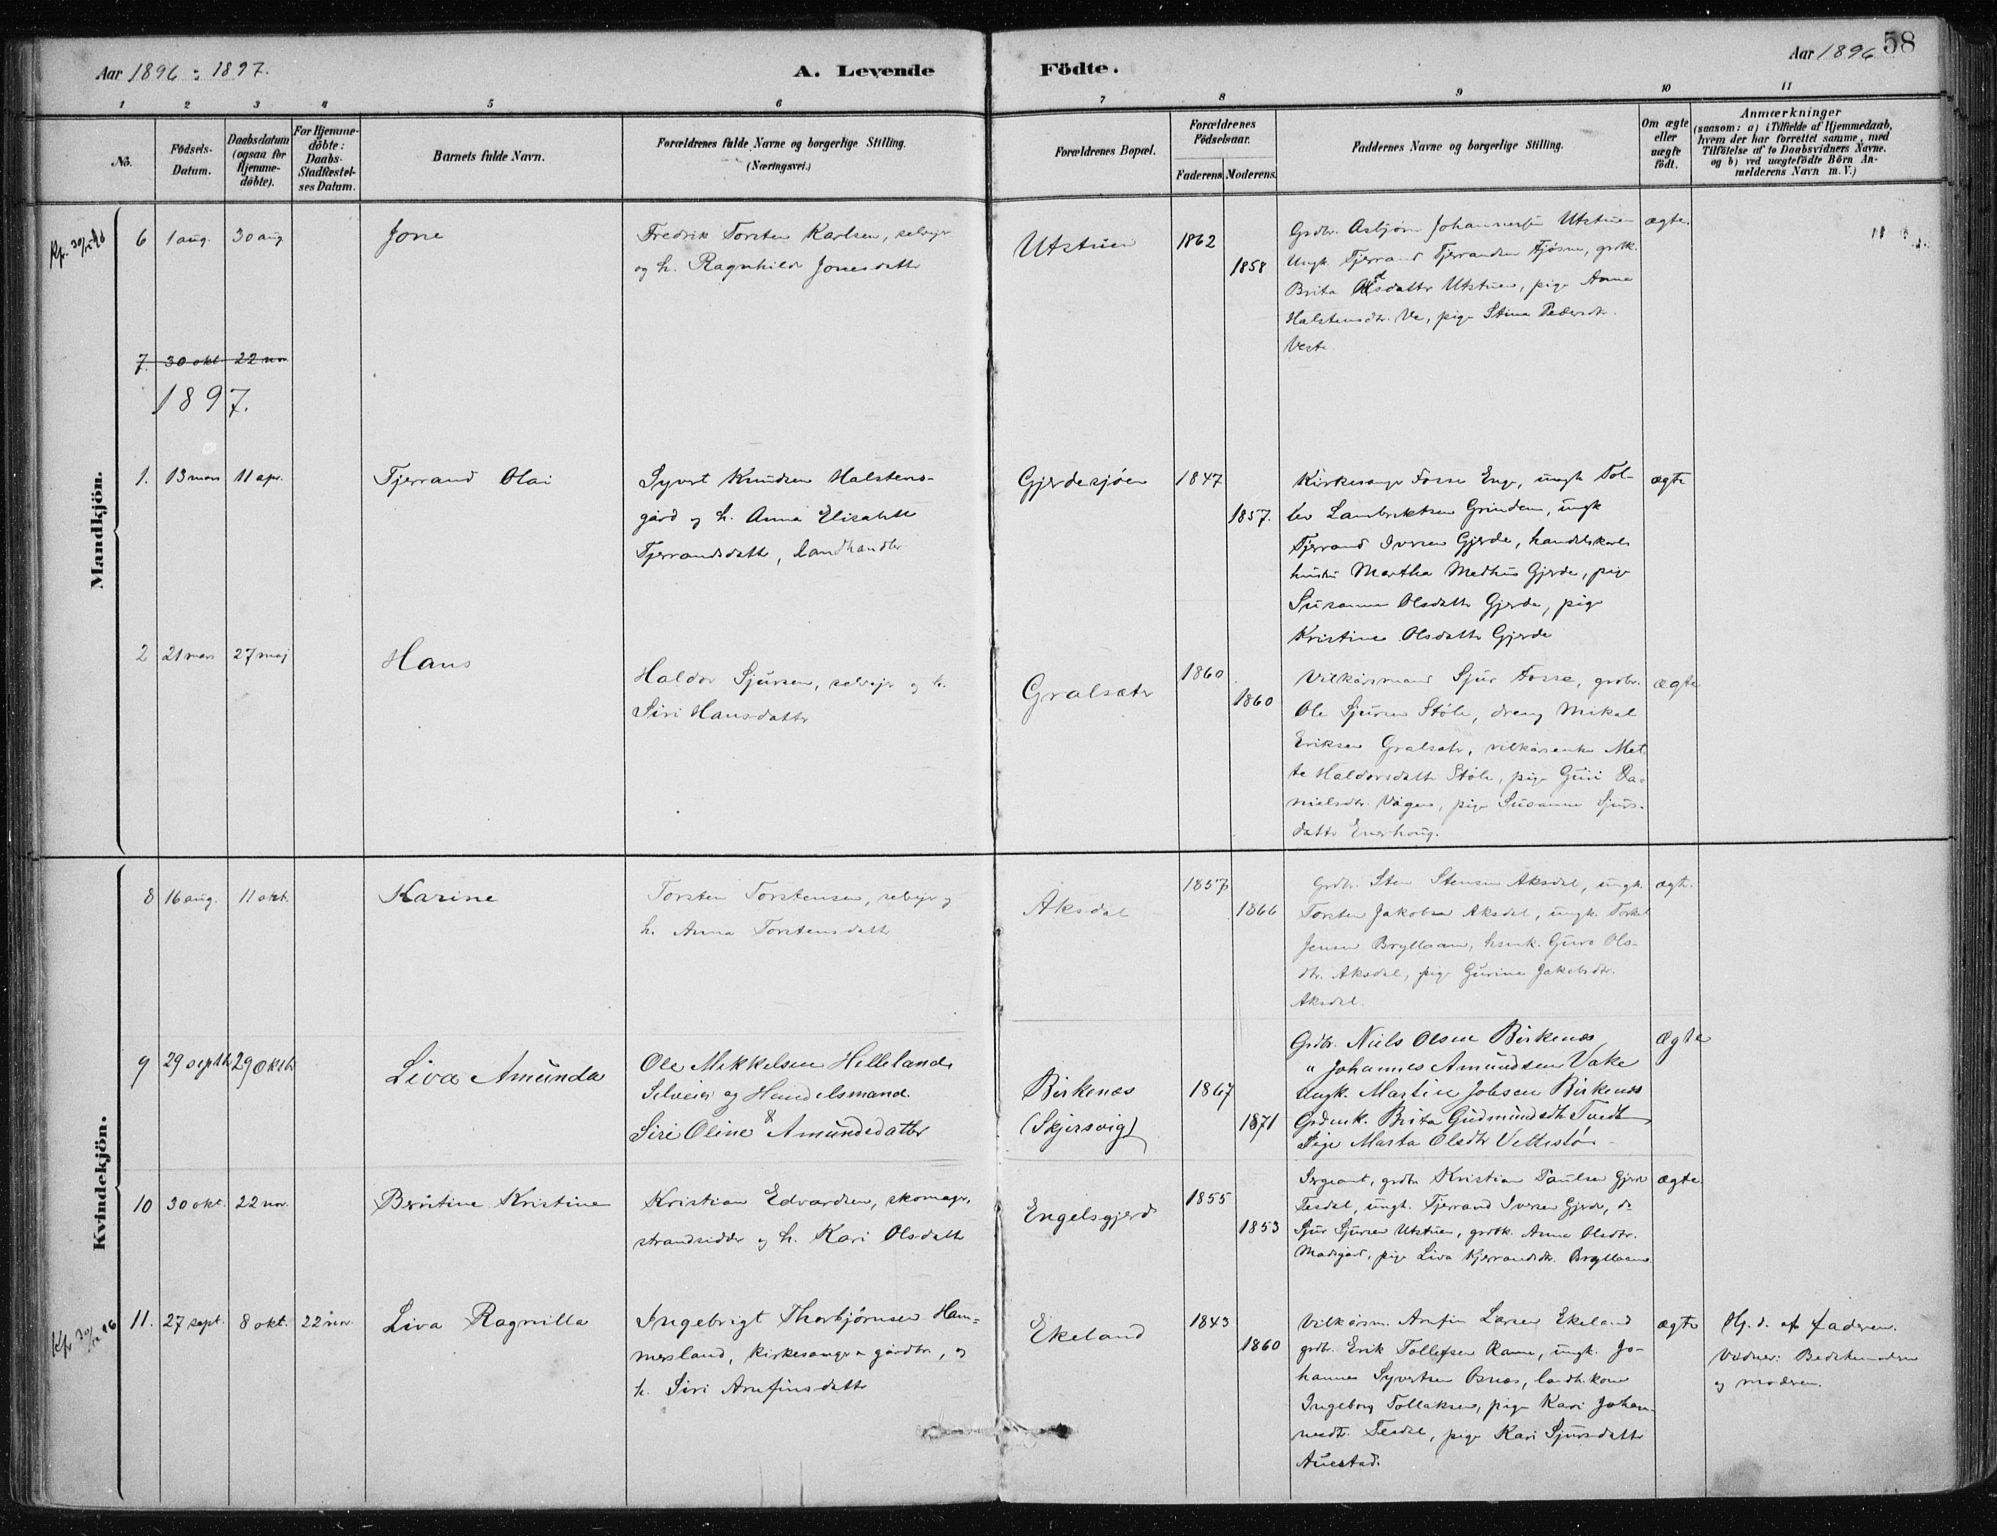 Aar 1896 : 1897.
A. Levende
Födte.
Aar 1896
58
1 2 3 4 5 6 7 8 9 10 11
No.
Födsels-
Datum.
Daabsdatum
(ogsaa for
Hjemme-
döbte).
For Hjemme-
döbte:
Daabs-
Stadfæstel-
ses Datum.
Barnets fulde Navn.
Forældrenes fulde Navne og borgerlige Stilling.
(Næringsvei.)
Forældrenes Bopæl.
Forældrenes
Födselsaar.
Faderens.
Moderens.
Faddernes Navne og borgerlige Stilling.
Om ægte
eller
uægte
födt.
Anmærkninger
(saasom: a) i Tilfælde af Hjemmedaab,
hvem der har forrettet samme, med
Tilföielse af to Daabsvidners Navne.
og b) ved uægtefödte Börn An-
melderens Navn m. V.)
Mandkjön.
6 1 aug. 30 aug
Jone
Fredrik Torsten Karlsen, selveier
og h. Ragnhilde Jonesdatter
Utstuen
1862
1858
Grdbr. Asbjørn Johannessen Utstuen
Ungk. Tjerrand Tjerrandsen Fjøsne, grdk.
Brita Olsdatter Utstuen, pige Anna
Halstensdtr. Ve, pige Stina Pedersdtr.
Veste
ægte.
7. 30 okt 22 nov
1897.
1. 13 mars 11 apr.
Tjerrand Olai
Syvert Knudsen Halstens-
gård og h. Anna Elisabeth
Tjerrandsdatter, landhandler
Gjerdesjøen
1847
1857.
Kirkesanger Fosse Enge, ungk. Tol-
lev Lambrektsen Grindem, ungk
Tjerrand Iversen Gjerde, handelskarls
hustru Martha Medhus Gjerde, pige
Susanne Olsdatter Gjerde, pige
Kristine Olsdatter Gjerde
ægte
2 21 mars 27 maj
Hans
Haldor Sjursen, selvejer og h.
Siri Hansdatter
Gralsæter
1860
1860
Vilkårsmand Sjur Fosse, grdbr.
Ole Sjursen Støle, dreng Mikal
Eriksen Gralsæter, vilkårsenke Met-
te Haldorsdatter Støle, pige Guri Da-
nielsdtr. Vågen, pige Susanne Sjurs-
datter Enerhoug.
ægte
Kvindekjön.
8 16 aug. 11 okt.
Karine
Torsten Torstensen, selvejer og
h. Anna Torstensdatter
Aksdal
1857
1866
Grdbr. Sten Stensen Aksdal, ungk.
Torsten Jakobsen Aksdal, ungk. Torkel
Jensen Bryllsam, husmk. Guro Ols-
dtr. Aksdal, pige Gurine Jakobsdtr.
Aksdal.
ægte.
9 29 septb 29 Oktb
Liva Amunda
Ole Mikkelsen Hellelands
Selveier og Handelsmand
Siri Oline Amundsdatter
Birkenæs
(Skjersvig)
1867
1871
Grdbr. Niels Olsen Birkenæs
" Johannes Amundsen Vake
Ungk. Martin Jobsen Birkenæs
Grdmk. Brita Gudmundsdtr Tvedt
Pige Marta Olsdtr Vettestø
Ægte
10 30 okt. 22 nov.
Berntine Kristine
Kristian Edvardsen, skomager,
strandsidder og h. Kari Olsdatter
Engelsgjerd
1855
1853
Sergeant, grdbr Kristian Paulsen Gjerde
Tesdal, ungk. Tjerrand Iversen Gjerde, do
Sjur Sjursen Utstuen, grdk. Anna Olsdtr.
Madsgård, pige Liva Kjerrandsdtr. Bryllsam
ægte
11. 27 sept. 8 okt. 22 nov.
Liva Ragnilla
Ingebrigt Thorbjørnsen Ham-
mersland, kirkesanger, gårdbr., og
h. Siri Arnfinsdatter
Ekeland
1843
1860
Vilkårsm. Arnfin Larsen Ekeland
grdbr. Erik Tollefsen Ramne, ungk. Jo-
hannes Syvertsen Osnes, landh. kone
Ingeborg Tollaksen, pige Kari Johan-
nesdtr. Tesdal, pige Kari Sjursdatter
Auestad.
ægte
Hj. d. af faderen.
Vidner: Bedstemoderen
og moderen.